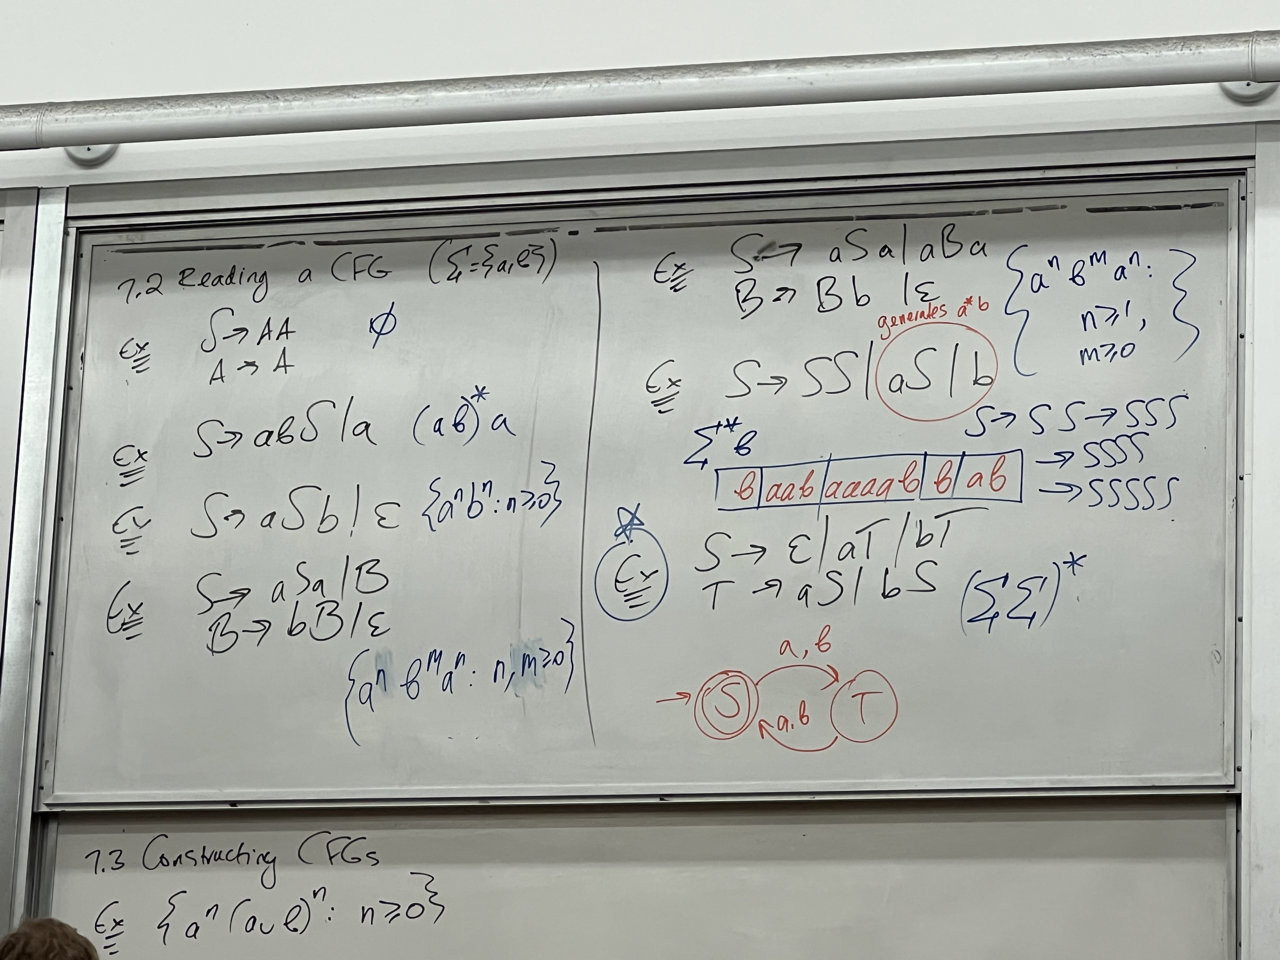 7.2 Reading a CFG (Σ={a,b})
Ex S→AA ∅
A→A
Ex S→abS|a (ab)*a
Ex S→aSb|ε {aⁿbⁿ: n≥0}
Ex S→aSa|B
B→bB|ε
{aⁿbᵐaⁿ: n,m≥0}
Ex S→aSa|aBa
B→Bb|ε
{aⁿbᵐaⁿ:
n≥1,
m≥0}
generates a*b
Ex S→SS|aS|b
S→SS→SSS
Σ*b →SSSS
b|aab|aaaab|b|ab →SSSSS
Ex S→ε|aT|bT
T→aS|bS (ΣΣ)*
a,b
→ S T
a,b
7.3 Constructing CFGs
Ex {aⁿ(a∪b)ⁿ: n≥0}